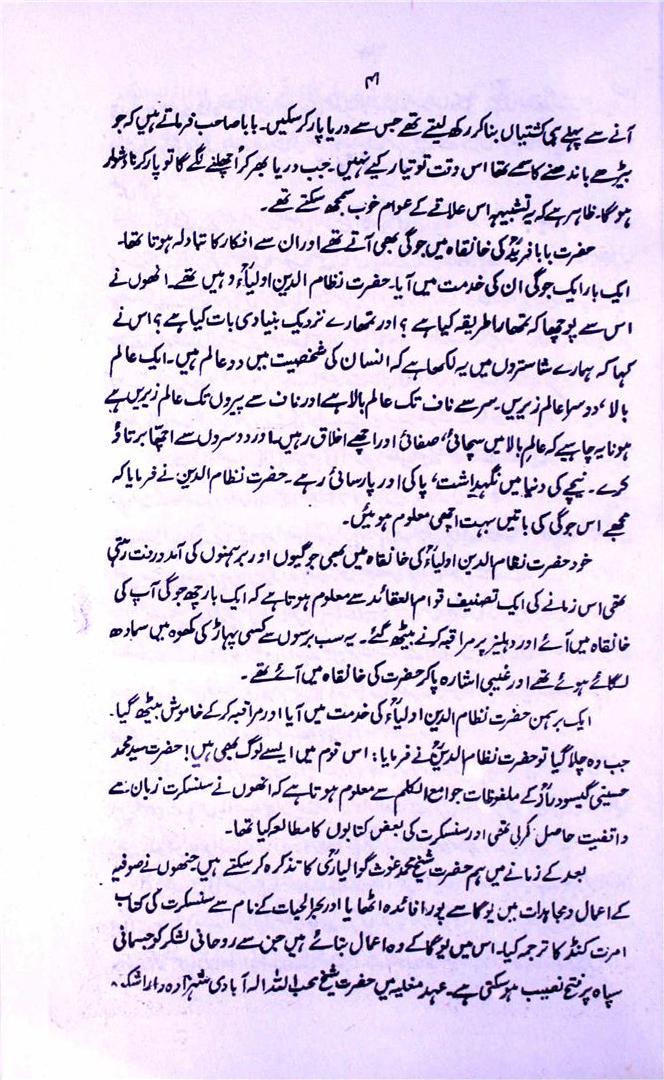 ۳۱
آنے سے پہلے ہی کشتیاں بناکر رکھ لیتے تھے جس سے دریا پار کرسکیں۔ بابا صاحب فرماتے ہیں کہ جو
بیڑے باندھنے کا سمے تھا اس وقت تو تیار کیے نہیں۔ جب دریا بھر کر اُچھلنے لگے گا تو پار کرنا دشوار
ہوگا۔ ظاہر ہے کہ یہ تشبیہہ اس علاقے کے عوام خوب سمجھ سکتے تھے۔
حضرت بابا فریدؒ کی خانقاہ میں جوگی بھی آتے تھے اور ان سے افکار کا تبادلہ ہوتا تھا۔
ایک بار ایک جوگی ان کی خدمت میں آیا۔ حضرت نظام الدین اولیاؒء وہیں تھے۔ انھوں نے
اس سے پوچھا کہ تمھارا طریقہ کیا ہے؟ اور تمھارے نزدیک بنیادی بات کیا ہے؟ اس نے
کہا کہ ہمارے شاستروں میں یہ لکھا ہے کہ انسان کی شخصیت میں دو عالم ہیں۔ ایک عالم
بالا، دوسرا عالم زیریں۔ سر سے ناف تک عالم بالا ہے اور ناف سے پیروں تک عالم زیریں ہے
ہونا یہ چاہیے کہ عالم بالا میں سچائی، صفائی اور اچھے اخلاق رہیں۔ اور دوسروں سے اچھا برتاؤ
کرے۔ نیچے کی دنیا میں نگہداشت، پاکی اور پارسائی رہے۔ حضرت نظام الدین نے فرمایا کہ
مجھے اس جوگی کی باتیں بہت اچھی معلوم ہوئیں۔
خود حضرت نظام الدین اولیاءؒ کی خانقاہ میں بھی جوگیوں اور برہمنوں کی آمد و رفت رہتی
تھی اس زمانے کی ایک تصنیف قوام العقائد سے معلوم ہوتا ہے کہ ایک بار چھ جوگی آپ کی
خانقاہ میں آئے اور دہلیز پر مراقبہ کرنے بیٹھ گئے۔ یہ سب برسوں سے کسی پہاڑ کی کھوہ میں سمادھ
لگائے ہوئے تھے اور غیبی اشارہ پاکر حضرت کی خانقاہ میں آئے تھے۔
ایک برہمن حضرت نظام الدین اولیاءؒ کی خدمت میں آیا اور مراقبہ کرکے خاموش بیٹھ گیا۔
جب وہ چلا گیا تو حضرت نظام الدینؒ نے فرمایا: اس قوم میں ایسے لوگ بھی ہیں! حضرت سید محمد
حسینی گیسو درازؒ کے ملفوظات جوامع الکلم سے معلوم ہوتا ہے کہ انھوں نے سنسکرت زبان سے
واقفیت حاصل کرلی تھی اور سنسکرت کی بعض کتابوں کا مطالعہ کیا تھا۔
بعد کے زمانے میں ہم حضرت شیخ محمد غوث گوالیاریؒ کا تذکرہ کرسکتے ہیں جنھوں نے صوفیہ
کے اعمال و مجاہدات میں یوگا سے پورا فائدہ اٹھایا اور بحرالحیات کے نام سے سنسکرت کی کتاب
امرت کنڈ کا ترجمہ کیا۔ اس میں یوگا کے وہ اعمال بتائے ہیں جن سے روحانی لشکر کو جسمانی
سپاہ پر فتح نصیب ہوسکتی ہے۔ عہد مغلیہ میں حضرت شیخ محب اللہ الہ آبادی شہزادہ داراشکوہ